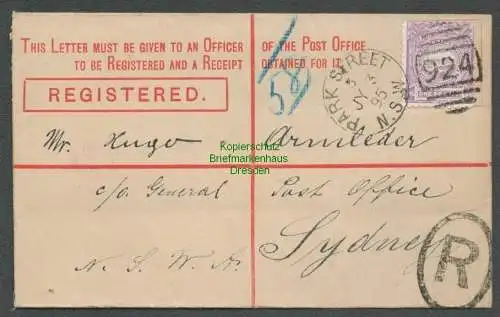 THIS LETTER MUST BE GIVEN TO AN OFFICER OF THE POST OFFICE
TO BE REGISTERED AND A RECEIPT OBTAINED FOR IT.
REGISTERED.
58
PARK STREET
N.S.W.
95
924
Mr. Hugo Armleder
Kopierschutz
Briefmarkenhaus
Dresden
c/o General Post Office
N. S. W. A. Sydney
R